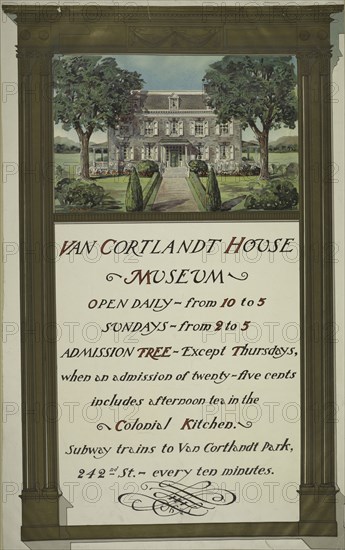 VAN CORTLANDT HOUSE
MUSEUM
OPEN DAILY – from 10 to 5
SUNDAYS – from 2 to 5
ADMISSION TREE – Except Thursdays,
when an admission of twenty-five cents
includes afternoon tea in the
Colonial Kitchen.
Subway trains to Van Cortlandt Park,
242nd St. – every ten minutes.